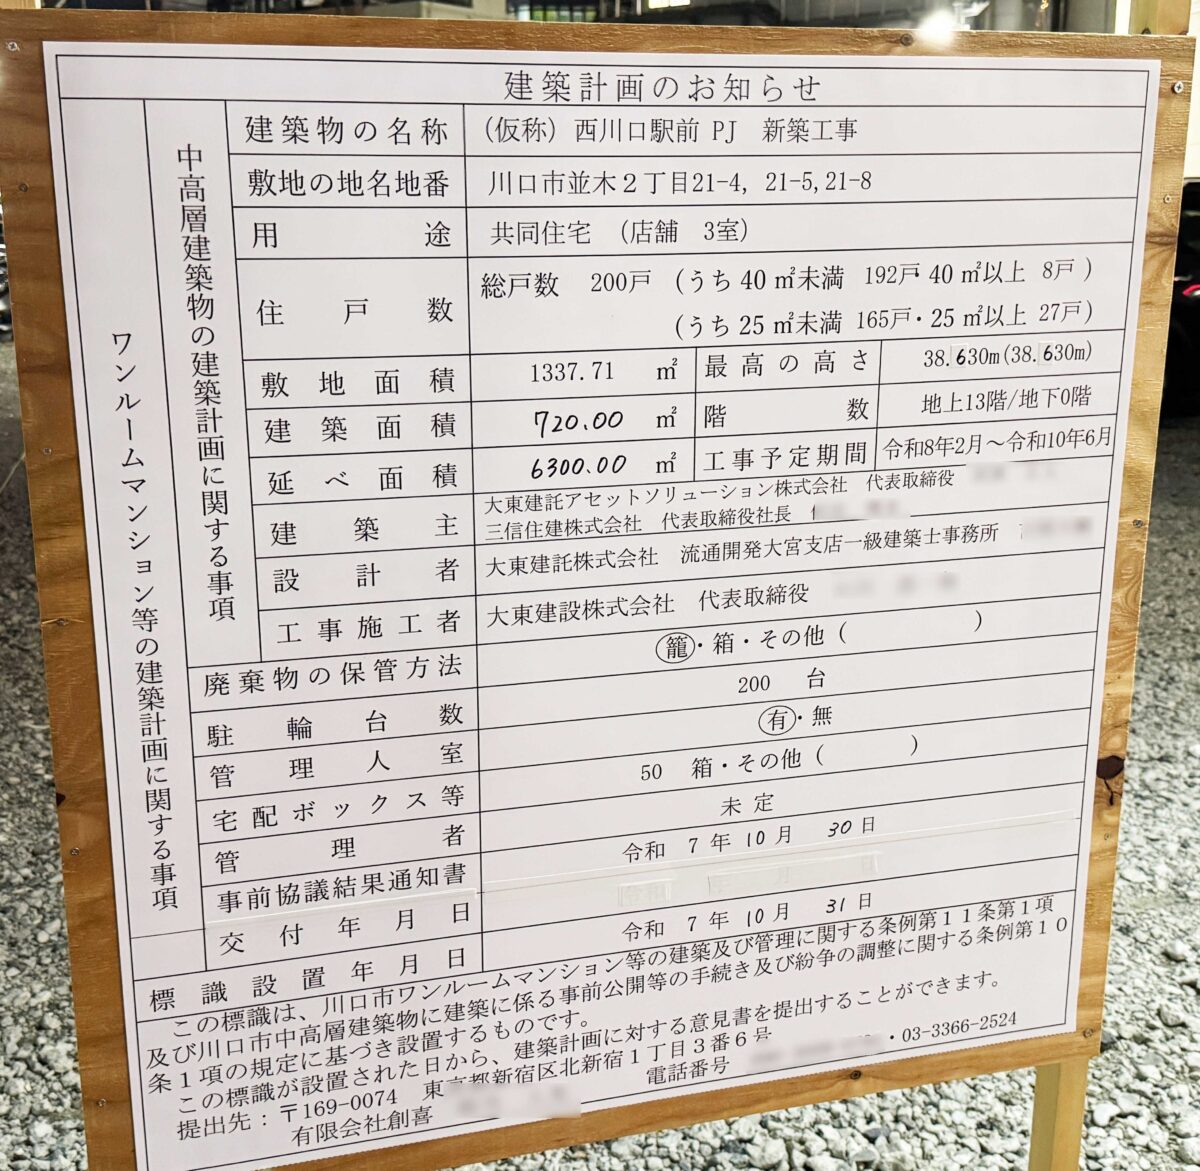 建築計画のお知らせ
ワンルームマンション等の建築計画に関する事項
中高層建築物の建築計画に関する事項
建築物の名称 （仮称）西川口駅前 PJ 新築工事
敷地の地名地番 川口市並木２丁目21-4, 21-5,21-8
用途 共同住宅 （店舗 3室）
住戸数 総戸数 200戸 （うち 40 ㎡未満 192戸・40 ㎡以上 8戸 ）
（うち 25 ㎡未満 165戸・25 ㎡以上 27戸）
敷地面積 1337.71 ㎡ 最高の高さ 38.630m(38.630m)
建築面積 720.00 ㎡ 階数 地上13階/地下0階
延べ面積 6300.00 ㎡ 工事予定期間 令和8年2月～令和10年6月
建築主 大東建託アセットソリューション株式会社 代表取締役
三信住建株式会社 代表取締役社長
設計者 大東建託株式会社 流通開発大宮支店一級建築士事務所
工事施工者 大東建設株式会社 代表取締役
廃棄物の保管方法 籠・箱・その他（ ）
駐輪台数 200 台
管理人室 有・無
宅配ボックス等 50 箱・その他（ ）
管理者 未定
事前協議結果通知書 令和 7 年 10 月 30 日
交付年月日
標識設置年月日 令和 7 年 10 月 31 日
この標識は、川口市ワンルームマンション等の建築及び管理に関する条例第１１条第１項
及び川口市中高層建築物に建築に係る事前公開等の手続き及び紛争の調整に関する条例第１０
条１項の規定に基づき設置するものです。
この標識が設置された日から、建築計画に対する意見書を提出することができます。
提出先：〒169-0074 東京都新宿区北新宿１丁目３番６号
有限会社創喜 電話番号 ・03-3366-2524